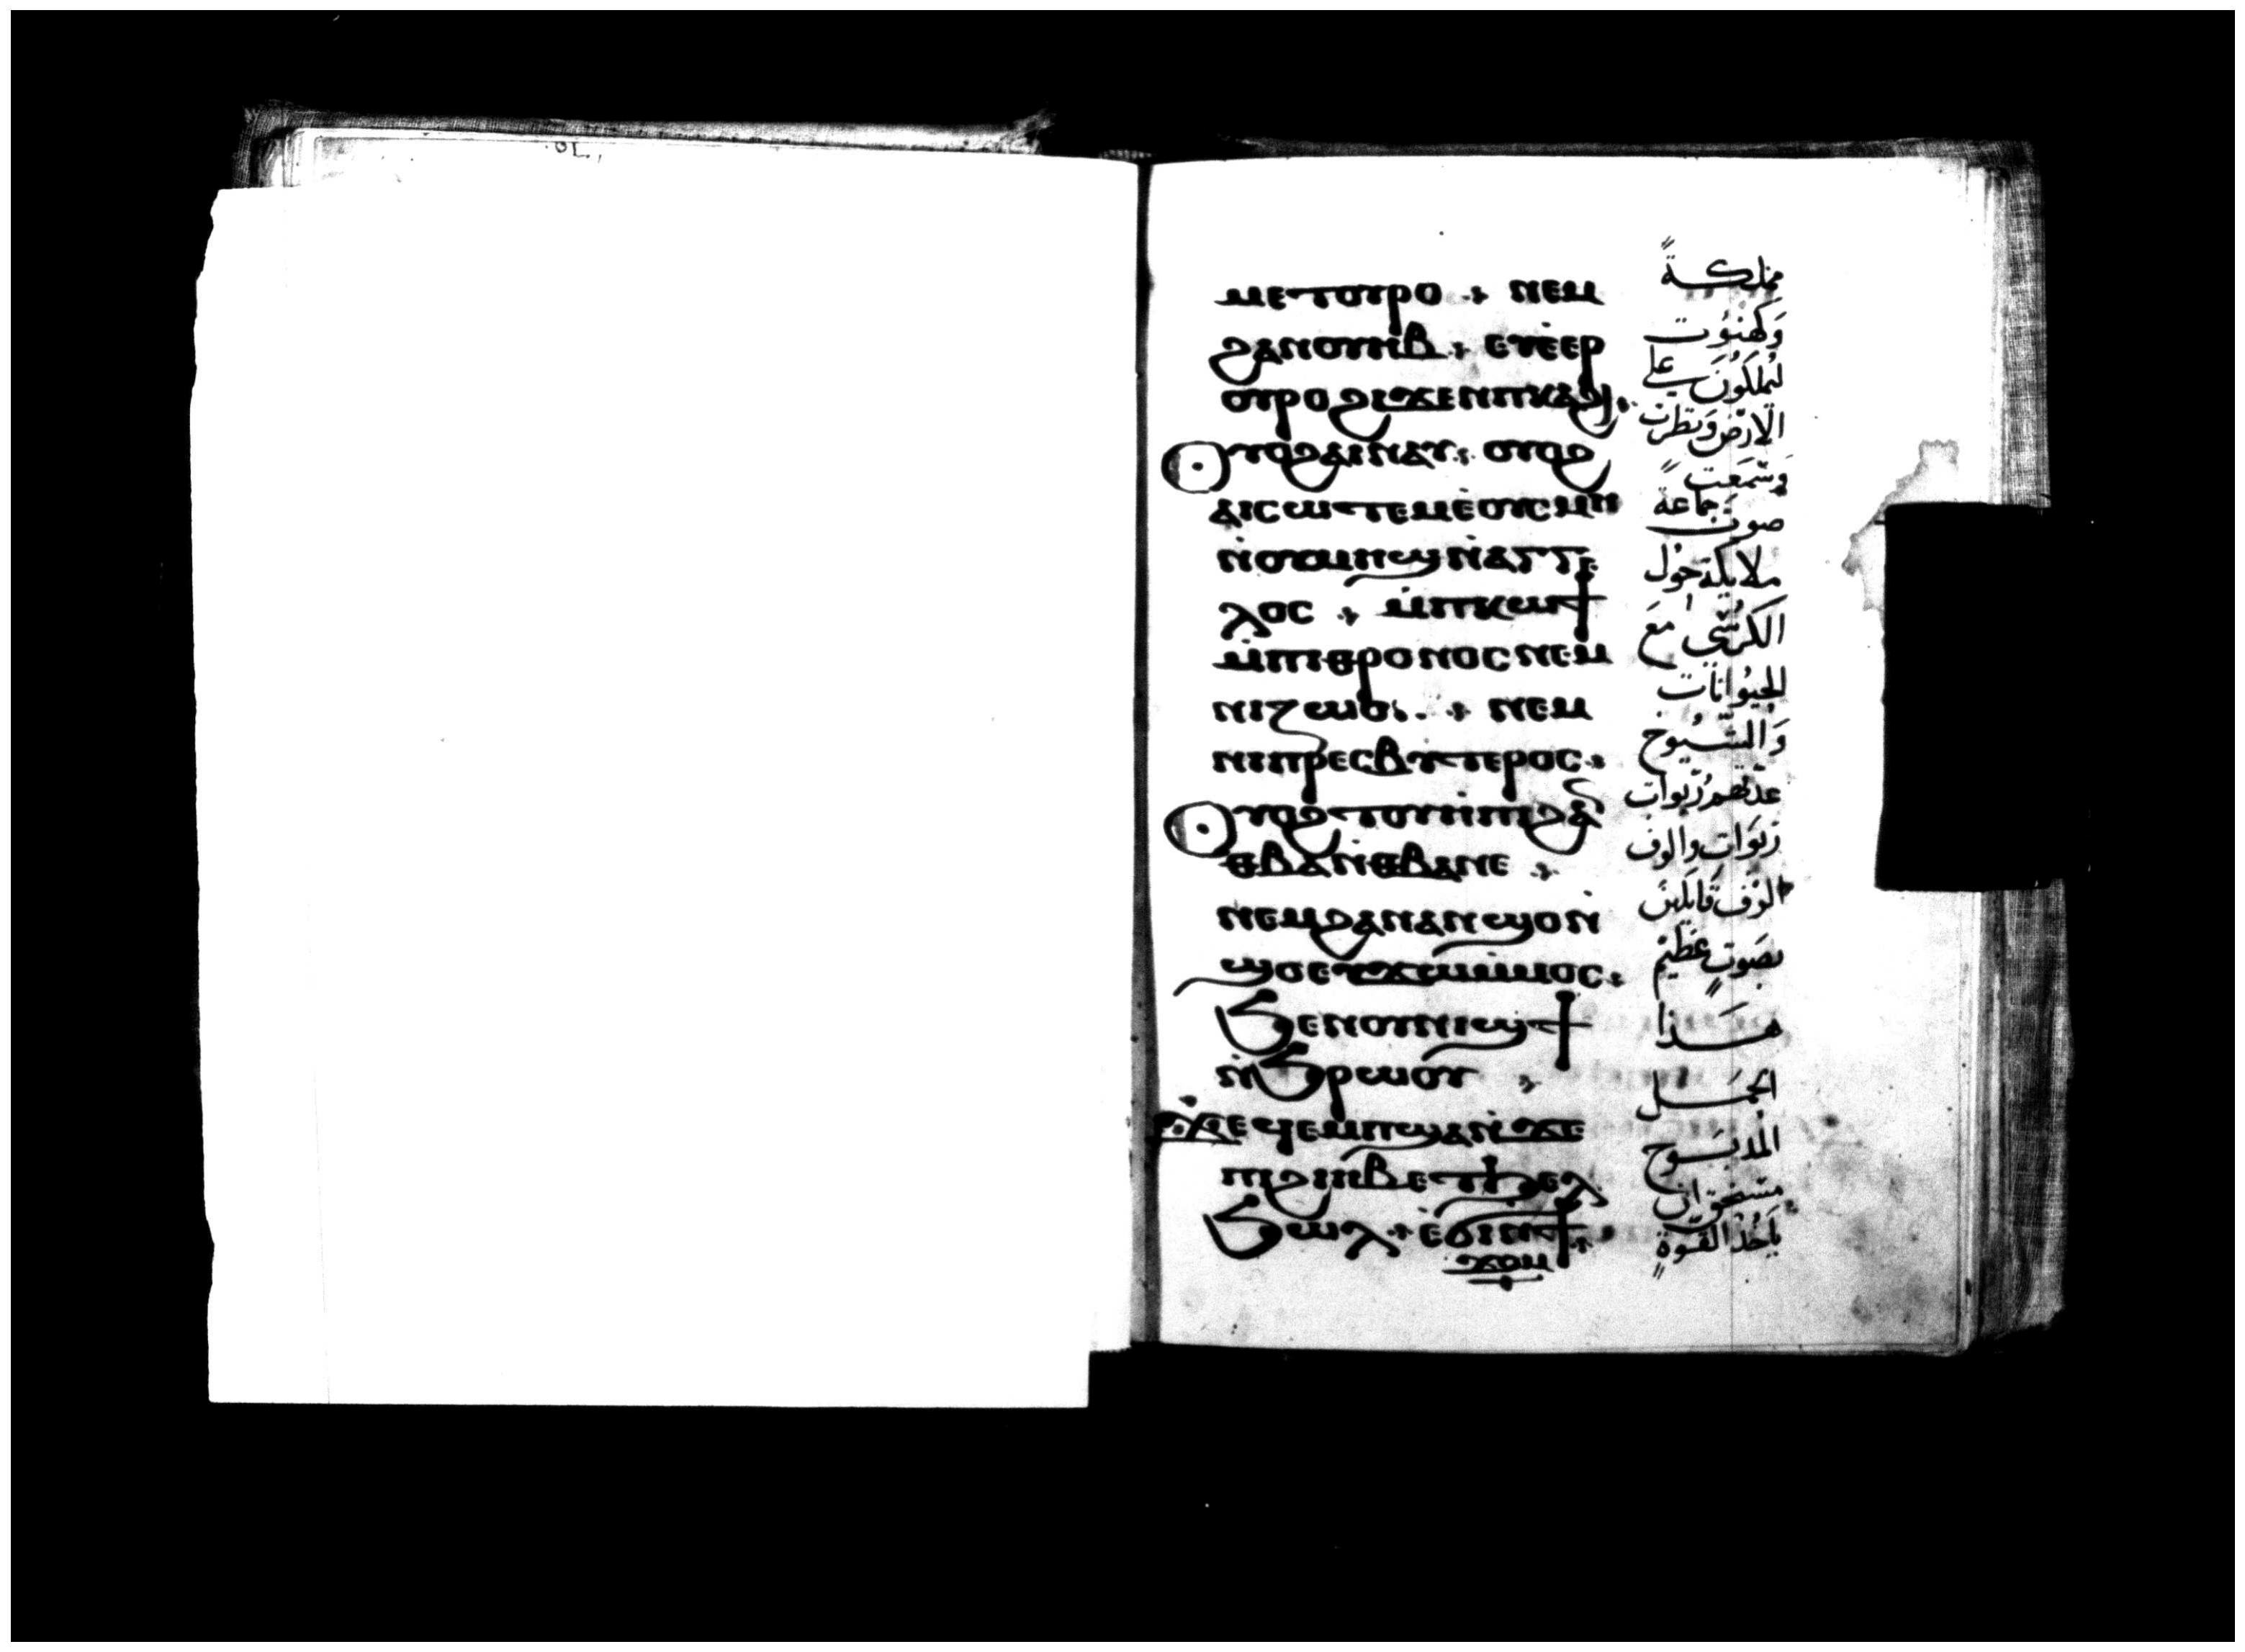 ⲙⲉⲧⲟⲩⲣⲟ ⳾ ⲛⲉⲙ
ϩⲁⲛⲟⲩⲏⲃ ⳾ ⲉⲩⲉ̇ⲉⲣ
ⲟⲩⲣⲟ ϩⲓϫⲉⲛⲡⲕⲁϩⲓ ⳾
Ⲟⲩⲟϩⲁⲓⲛⲁⲩ ⳾ ⲟⲩⲟϩ
ⲁⲓⲥⲱⲧⲉⲙⲉ̇ⲟⲩⲥⲙⲏ
ⲛ̇ⲟⲩⲙⲏϣⲛ̇ⲁⲅⲅⲉ
ⲗⲟⲥ ⳾ ⲙ̇ⲡⲕⲱϯ
ⲙ̇ⲡⲓⲑⲣⲟⲛⲟⲥ ⲛⲉⲙ
ⲛⲓⲍⲱⲟⲛ ⳾ ⲛⲉⲙ
ⲛⲓⲡⲣⲉⲥⲃⲩⲧⲉⲣⲟⲥ ⳾
Ⲟⲩⲟϩⲧⲟⲩⲏ̇ⲡⲓϩⲁ
ⲑⲃⲁⲛ̇ⲑⲃⲁⲛⲉ ⳾
ⲛⲉⲙϩⲁⲛⲁⲛϣⲟⲛ̇
ϣⲟⲉⲩϫⲱⲙ̇ⲙⲟⲥ ⳾
Ϧⲉⲛⲟⲩⲛⲓϣϯ
ⲛ̇ϧⲣⲱⲟⲩ ⳾
Ϫⲉϥⲉⲙⲡϣⲁⲛ̇ϫⲉ
ⲡⲓϩⲓⲏⲃⲉⲧϣⲉⲗ
ϧⲱⲗ ⳾ ⲉ̇ϭⲓⲛ̇ϯ ⳾
ϫⲟⲙ
مملكةً
وَكهنوت
ليملكونَ على
الارْض وَنظرت
وَسَمعت
صوت جماعة
ملايكة حول
الكرسّي مَعَ
الحيوانات
وَالشيوخ
عدّتهم ربوات
ربوَات والوف
الوْف قايلين
بصَوتٍ عَظيم
هَـذا
الحمَـل
المذبـوح
مستحق ان
يأخذ القوة